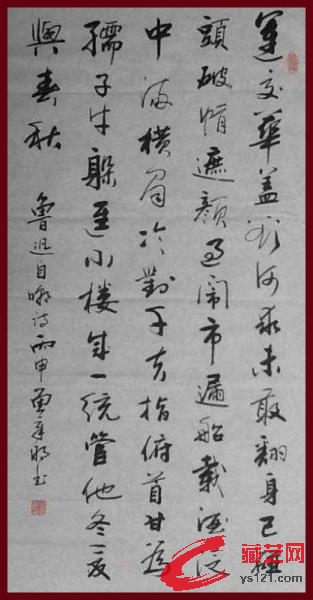 運交華蓋欲何求未敢翻身已碰
頭破帽遮顏過鬧市漏船載酒泛
中流橫眉冷對千夫指俯首甘為
孺子牛躲進小樓成一統管他冬夏
與春秋
魯迅自嘲诗丙申书
藏艺网
ys121.com